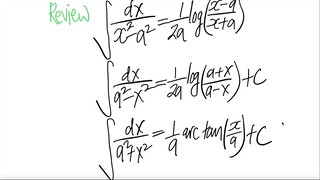 Review ∫ dx/(x²-a²) = 1/(2a) log((x-a)/(x+a))
∫ dx/(a²-x²) = 1/(2a) log((a+x)/(a-x)) + C
∫ dx/(a²+x²) = 1/a arc tan(x/a) + C